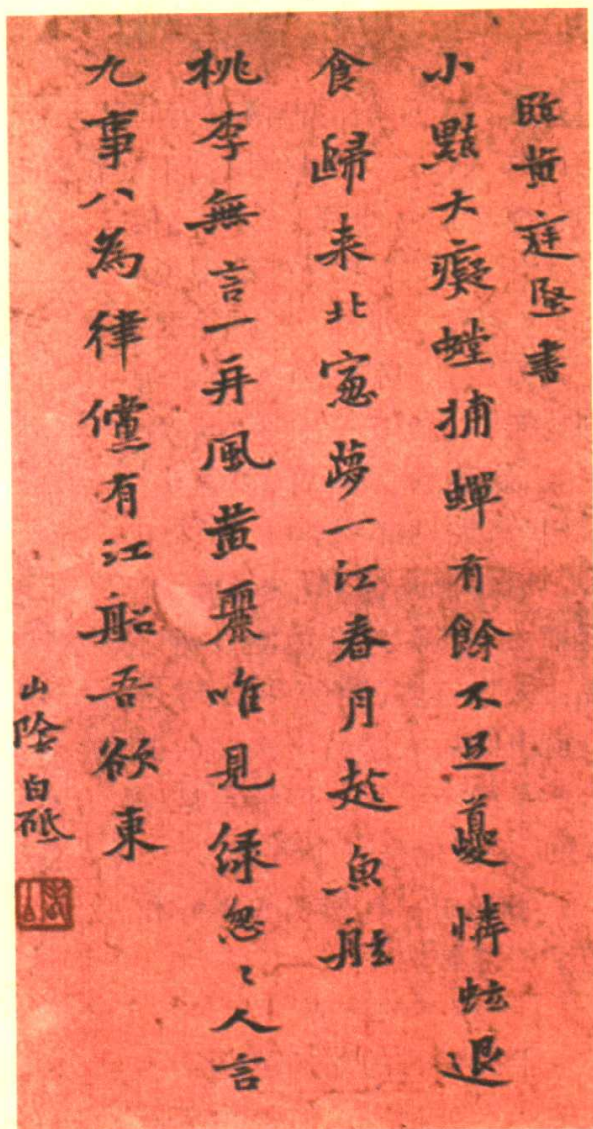 臨黃庭堅書
小黠大癡螳捕蟬有餘不足夔憐蚿退
食歸来北窓夢一江春月趂魚舡
桃李無言一再風黃麗唯見緑怱〻人言
九事八為律儻有江船吾欲東
山陰白砥